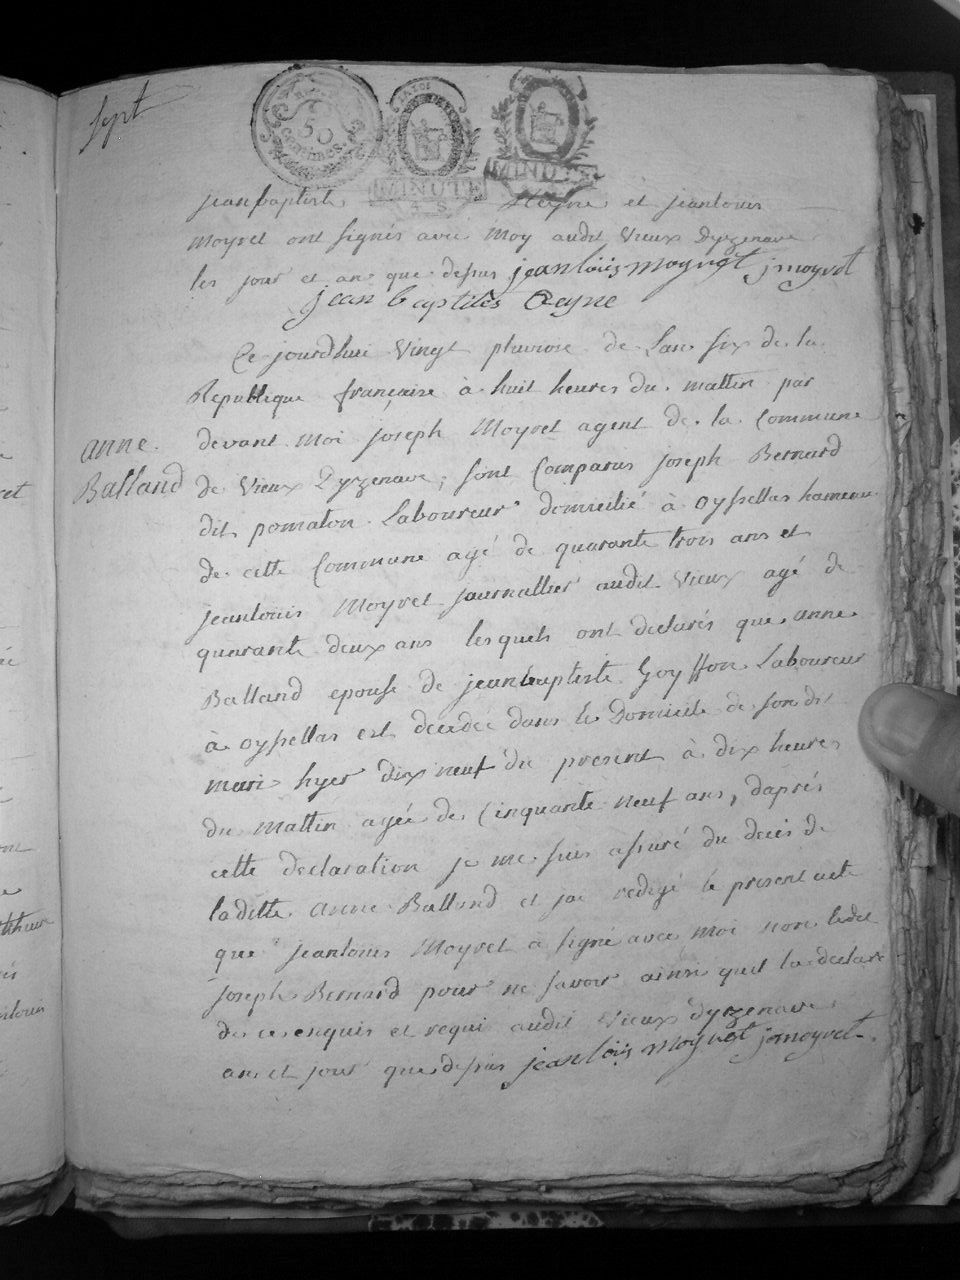 Sept
50
Centimes
LA LOI
MINUTE
MINUTE
jeanbaptiste Reyne et jeanlouis
Moyret ont signés avec Moy audit Vieux Dyzenave
les jour et an que depus jean loüis moyret jmoyret
jean baptites Reyne
Ce jourdhui Vingt pluviose de Lan six de la
Republeque française à huit heures du mattin par
anne
devant Moi joseph Moyret agent de la Commune
Balland
de Vieux Dyzenave, sont Comparus joseph Bernard
dit pomaton Laboureur domicilié à oyssellas hameau
de cette Commune agé de quarante trois ans et
jeanlouis Moyret journallier audit Vieux agé de
quarante deux ans lesquels ont declarés que anne
Balland epouse de jeanbaptiste Goyffon Laboureur
à oyssellas est decedée dans le Domicile de son dit
mari hyer dix neuf du present à dix heures
du mattin agée de Cinquante neuf ans, daprés
cette declaration je me suis assuré du decés de
laditte anne Balland et jai redigé le present acte
que jeanlouis Moyret a signé avec Moi non ledit
joseph Bernard pour ne savoir ainsi quil la declaré
de ce enquis et requi audit Vieux dyzenave
an et jour que depus jean loüis moyret jmoyret